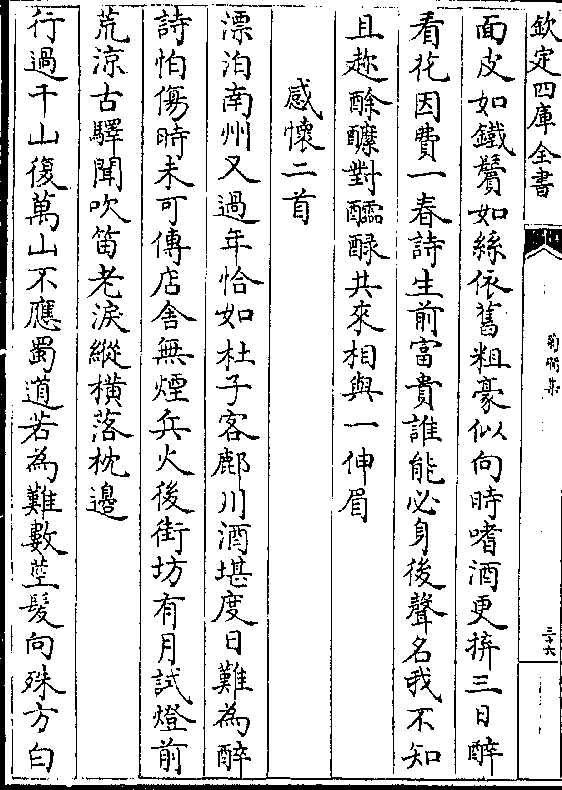 欽定四庫全書
菊磵集
三十六
面皮如鐵鬢如絲依舊粗豪似向時嗜酒更拚三日醉
看花因費一春詩生前富貴誰能必身後聲名我不知
且趂酴醿對醽醁共來相與一伸眉
感懷二首
漂泊南州又過年恰如杜子客鄜川酒堪度日難為醉
詩怕傷時未可傳店舍無煙兵火後街坊有月試燈前
荒涼古驛聞吹笛老淚縱橫落枕邊
行過千山復萬山不應蜀道若為難數莖髮向殊方白